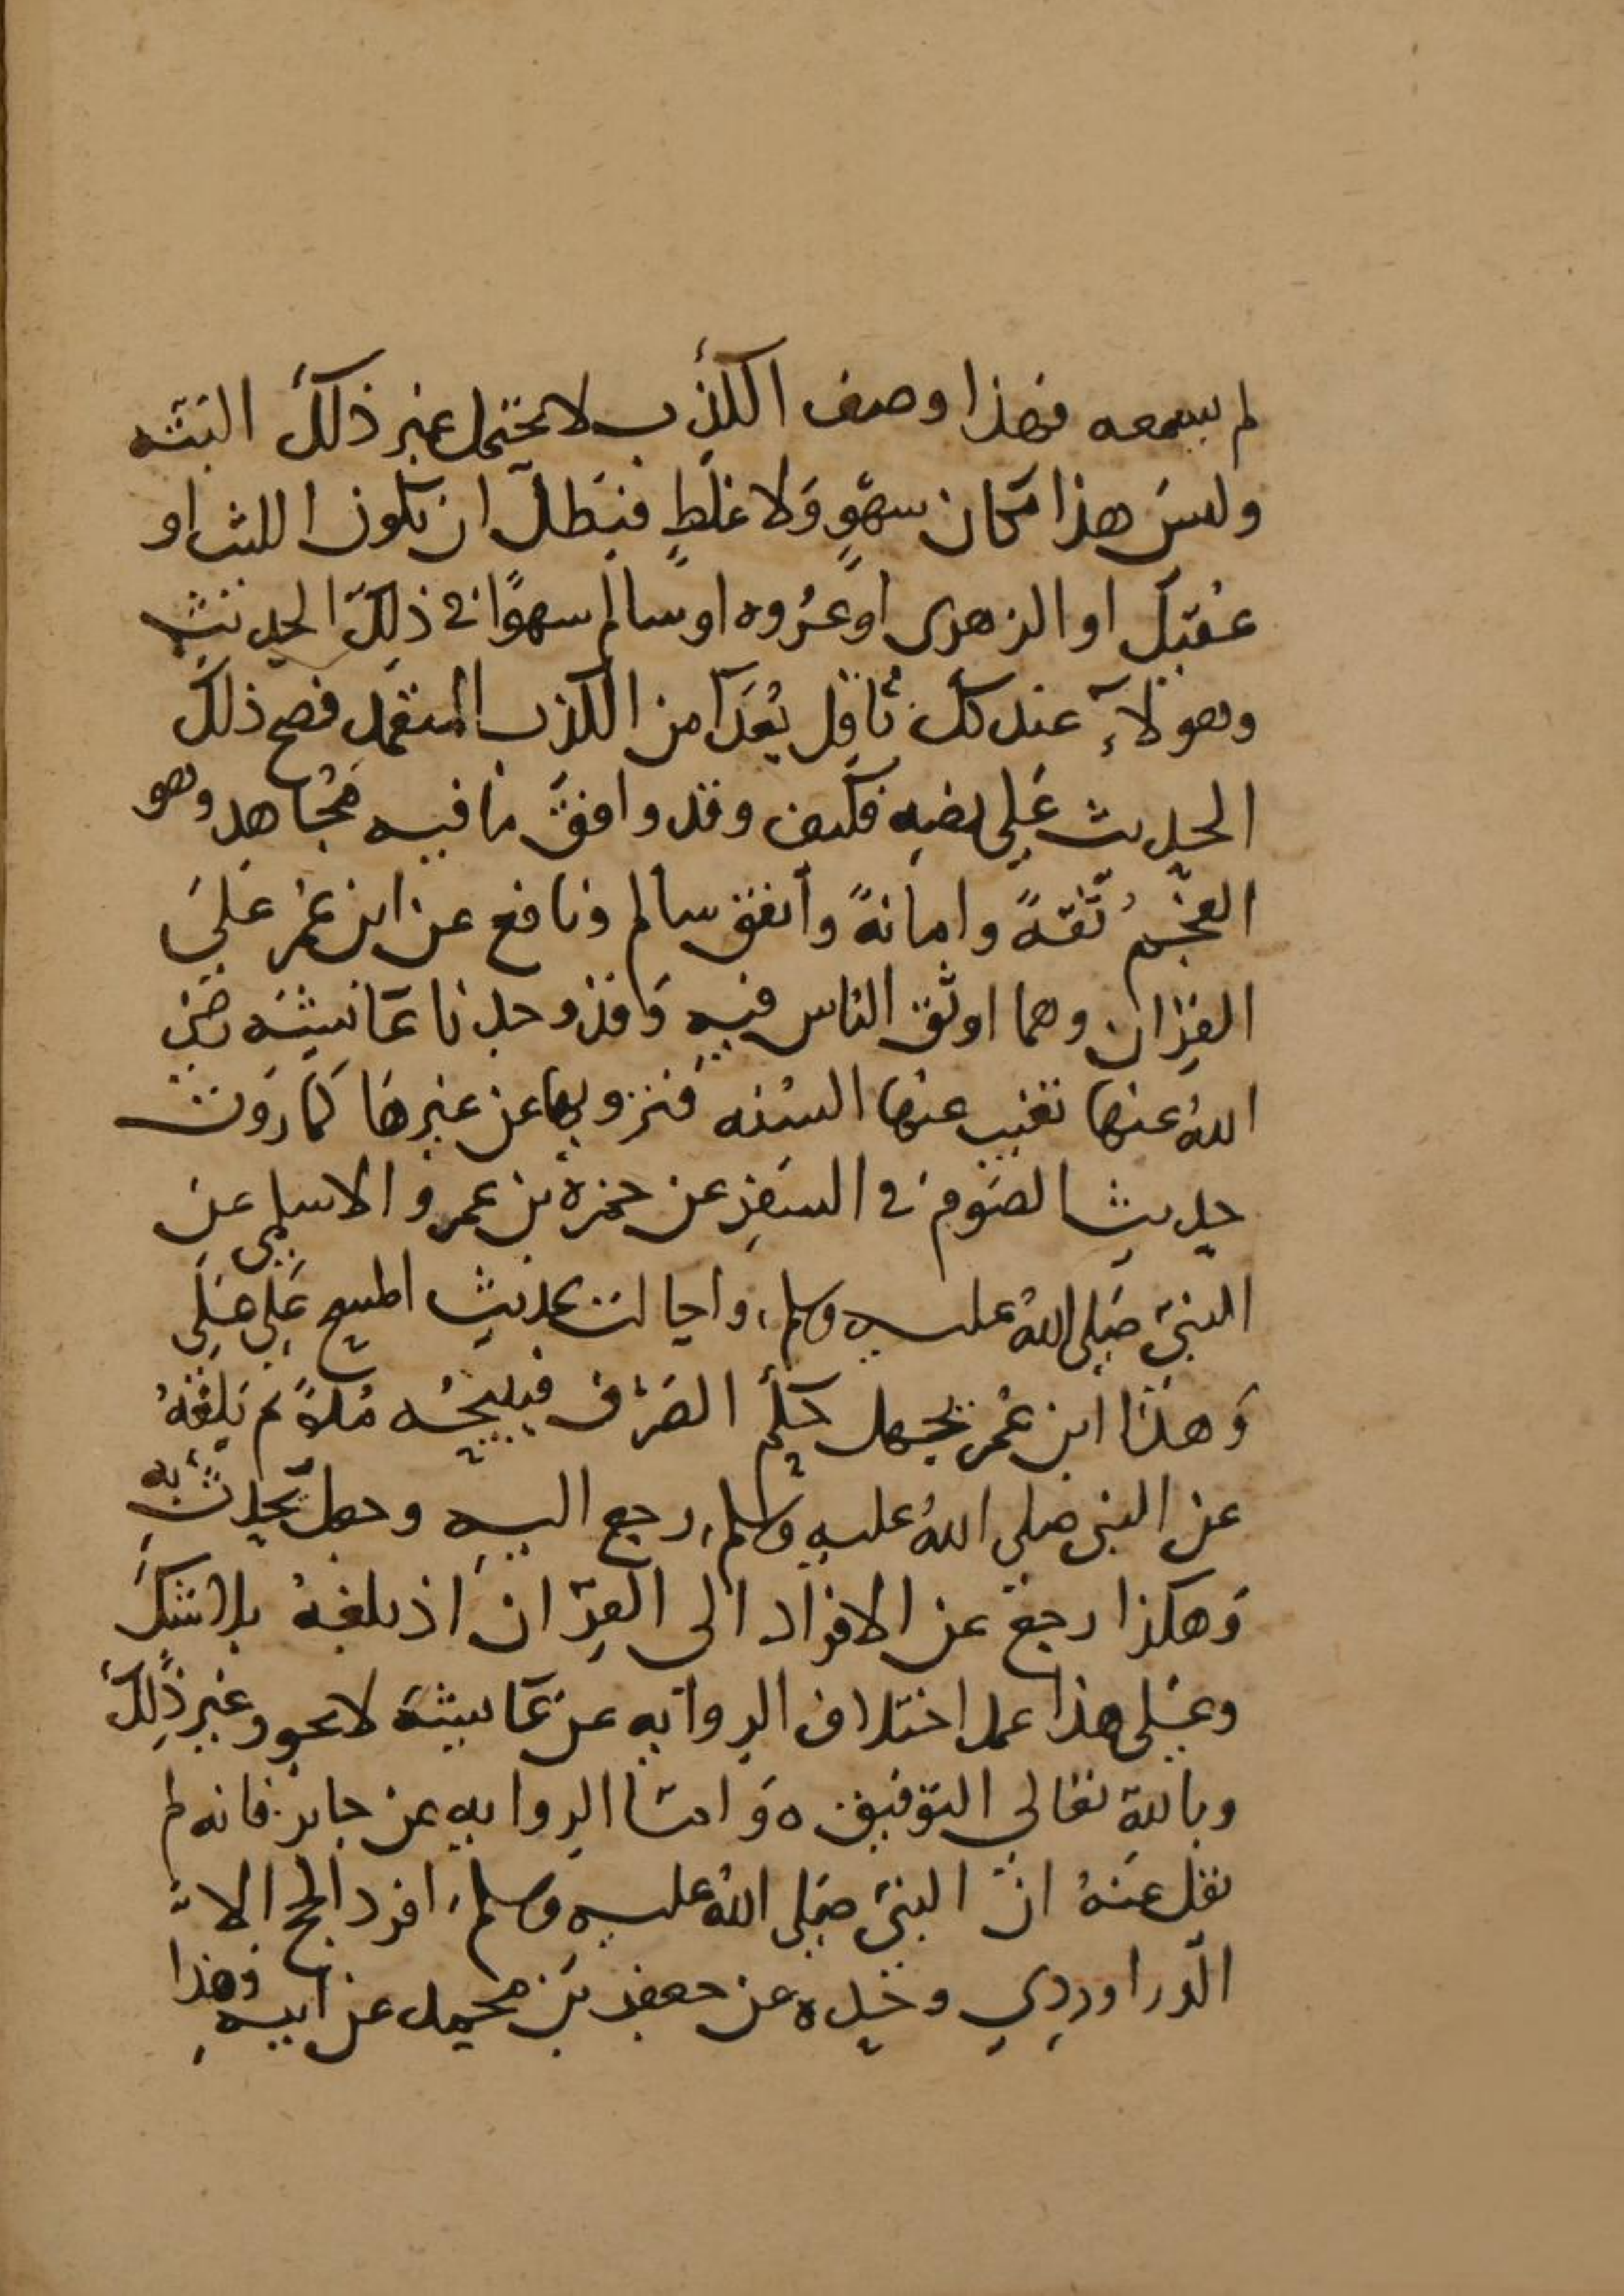 لم يسمعه فهذا وصف الكذب لا يحتمل غير ذلك البته
وليس هذا مكان سهوٍ وَلا غلطٍ فبَطل ان يكون الليث او
عُقيل او الزهرى او عُروه او سالم سهوًا في ذلك الحديث
وهولآءِ عند كل نَاقِل بُعَدَآ من الكذب المتعمد فصح ذلك
الحديث عَلى نصه فكيف وقد وافق مَا فيه مُجَاهد وهو
النجم ثقةً وامانةً واتفق سالم ونافع عن ابن عُمر عَلى
القِران وهما اوثق الناس فيهِ وَقد وجدنا عَائشَه رضي
اللهُ عنها تغيب عنها السنه فترويها عن غيرها كما روت
حديث الصَوم في السفر عن حمزة بن عمرو الاسلمي عن
النبي صَلى اللهُ عليه وسلم، واحالت بحديث المسح عَلى عَلِي
وَهذا ابن عُمر يجهل حكم الصَرف فيبيحُه مُدةً ثم بَلغهُ
عن النبي صلى اللهُ عليهِ وسلم، رجع اليهِ وجعل يحدث به
وَهكذا رجعَ عن الافراد الى القِرَان اذ بلغهُ بلا شك
وعَلى هذا عمل اختلاف الروايه عن عَائشة لا يجوز غير ذلك
وباللهِ تعَالى التوفيق ه وَامَّا الروايه عن جابر فانه لم
يقل عَنهُ انّ النبيّ صَلى اللهُ عليه وسلم، افرد الحج الاّ
الدراوردِي وحده عن جعفر بن محمد عن ابيهِ وهذا